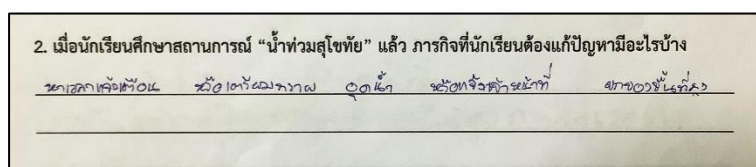 2. เมื่อนักเรียนศึกษาสถานการณ์ “น้ำท่วมสุโขทัย” แล้ว ภารกิจที่นักเรียนต้องแก้ปัญหามีอะไรบ้าง
หาเวลาแจ้งเตือน หรือเตรียมทราย อุดน้ำ หรือแจ้งเจ้าหน้าที่ ยกของขึ้นที่สูง